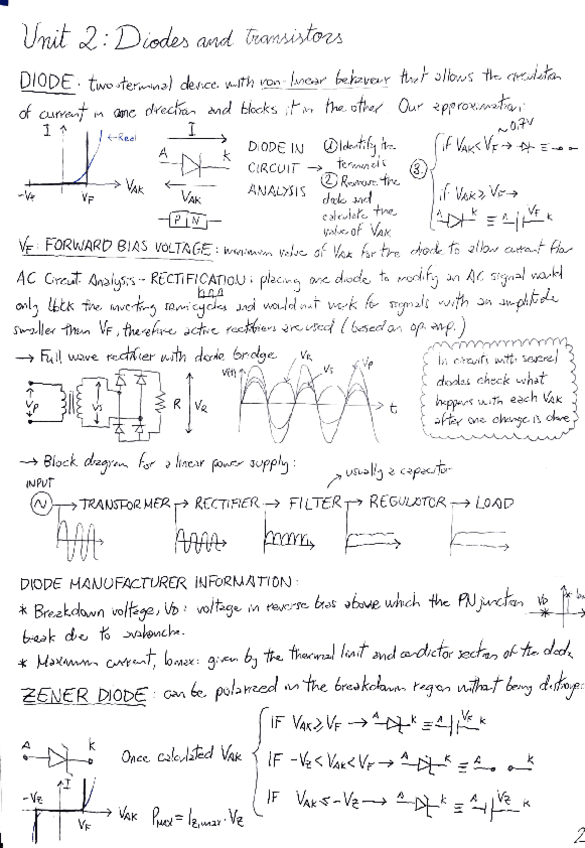 Unit 2: Diodes and transistors
DIODE: two-terminal device with non-linear behaviour that allows the circulation
of current in one direction and blocks it in the other. Our approximation:
I
←Real
-VF
VF
VAK
I
A
K
VAK
P N
DIODE IN
CIRCUIT →
ANALYSIS
① Identify the
terminals
② Remove the
diode and
calculate the
value of VAK
③
~0.7V
if VAK<VF →
if VAK≥VF →
A
K
≡
VF
K
VF: FORWARD BIAS VOLTAGE: minimum value of VAK for the diode to allow current flow
AC Circuit Analysis - RECTIFICATION: placing one diode to modify an AC signal would
only block the inverting semicycles and would not work for signals with an amplitude
smaller than VF, therefore active rectifiers are used (based on op. amp.)
→ Full wave rectifier with diode bridge
Vp
Vs
R
VR
V(t)
VR
Vs
Vp
t
In circuits with several
diodes check what
happens with each VAK
after one change is done
→ Block diagram for a linear power supply:
→ usually a capacitor
INPUT
→ TRANSFORMER → RECTIFIER → FILTER → REGULATOR → LOAD
DIODE MANUFACTURER INFORMATION:
* Breakdown voltage, VD: voltage in reverse bias above which the PN junction
break due to avalanche.
VD
* Maximum current, IDmax: given by the thermal limit and conductor section of the diode
ZENER DIODE: can be polarized in the breakdown region without being destroye
A
K
Once calculated VAK
IF VAK≥VF → A K ≡ A VF K
IF -VZ<VAK<VF → A K ≡ A K
IF VAK≤-VZ → A K ≡ A VZ K
-VZ
I
VF
VAK
PMAX = IZ,max · VZ
2